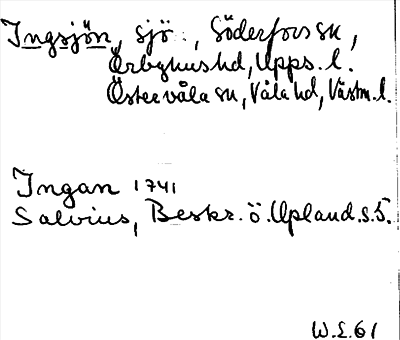 Ingsjön, sjö., Söderfors sn,
Örbyhus hd, Upps. l.
Östervåla sn, Våla hd, Västm. l.
Ingan 1741
Salvius, Beskr. ö. Upland. s. 5.
W.L.61